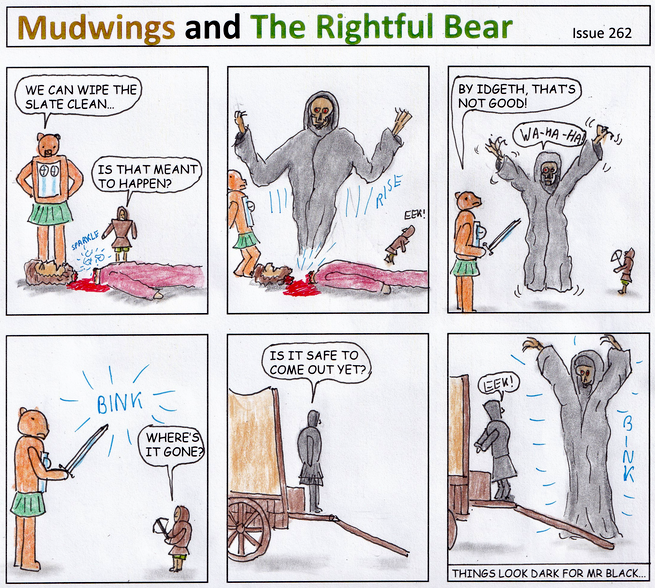 Mudwings and The Rightful Bear
Issue 262
WE CAN WIPE THE
SLATE CLEAN...
IS THAT MEANT
TO HAPPEN?
SPARKLE
RISE
EEK!
BY IDGETH, THAT'S
NOT GOOD!
WA-HA-HA!
BINK
WHERE'S
IT GONE?
IS IT SAFE TO
COME OUT YET?
EEK!
BINK
THINGS LOOK DARK FOR MR BLACK...